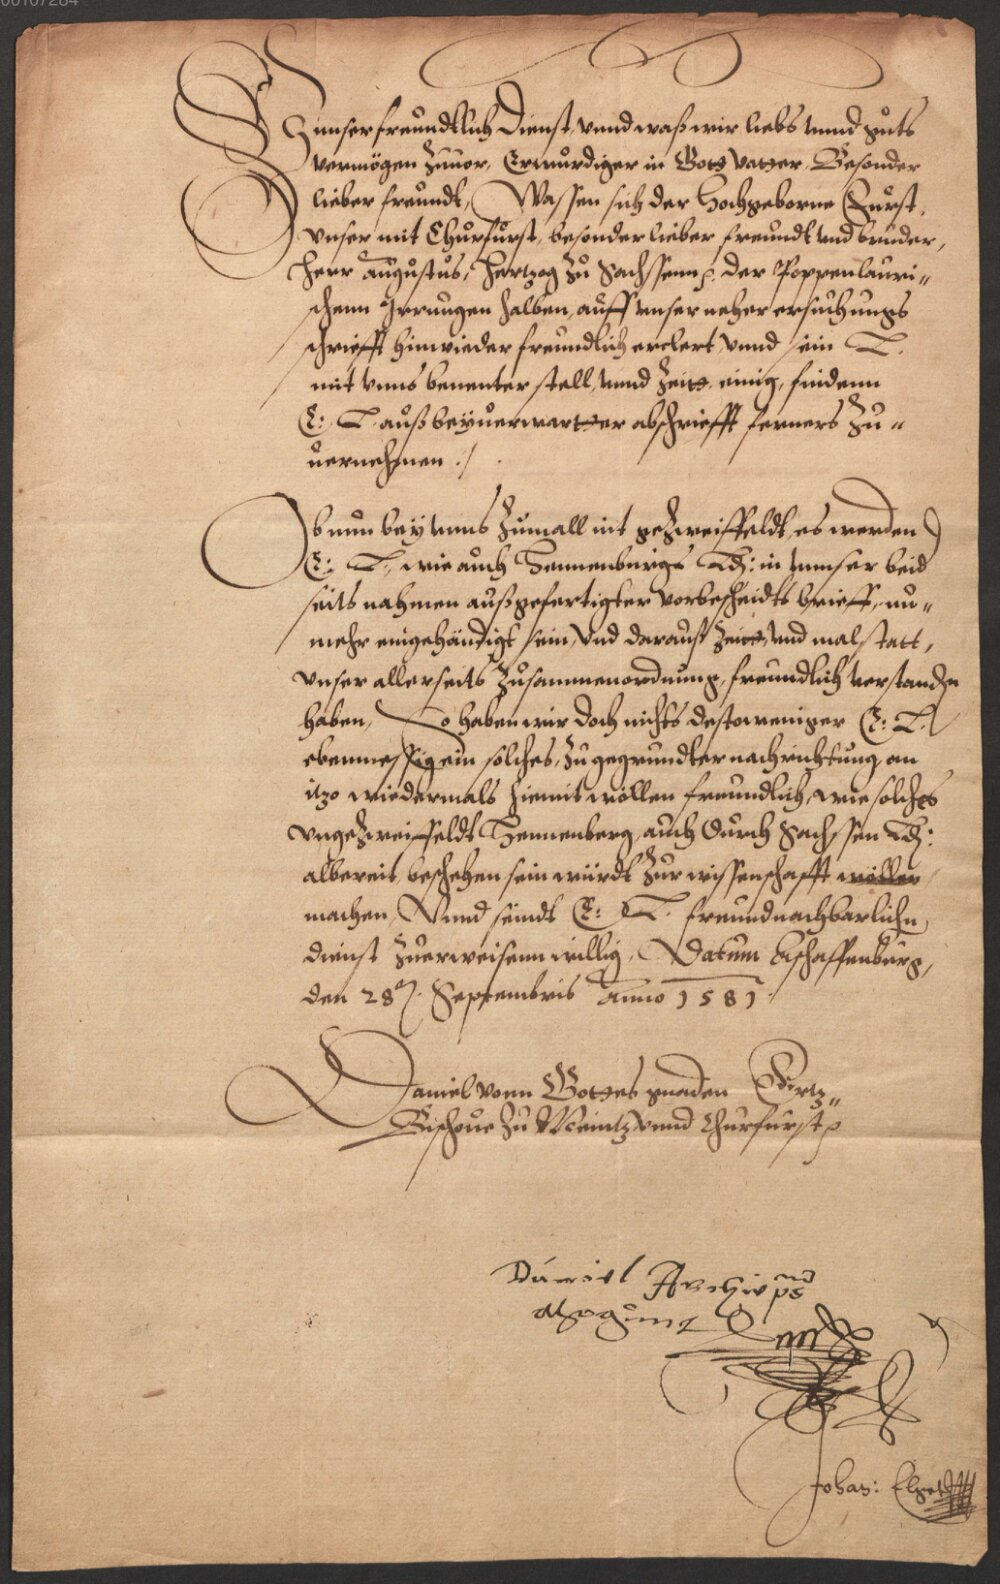 00107284
Unser freundtlich Dienst, vnnd waß wir liebs vnnd guts
vermögen zuuor, Erwurdiger in Gott vatter, Besonder
lieber freundt, Wassen sich der Hochgeborne Furst,
vnser mit Churfurst, besonder lieber freundt vnd bruder,
herr Augustus, Hertzog zu Sachssenn p. der Poppenlauri-
schenn Irrungen halben, auff vnser neher ersuchungs
schriefft hinwieder freundlich erclert, vnnd sein L.
mit vnns benenter stell, vnnd Zeitt einig, findenn
E: L. auß beyuerwarter abschriefft ferners zu-
uernehmen ./.
Ob nun bey vnns zumall nit gezweiffeldt, es werden
E: L., wie auch Hennenbergs Räth: in vnnser beid
seits nahmen außgefertigter vorbescheidts brieff, nu-
mehr eingehändigt sein, Vnd darauß Zeitt, vnd malstatt,
vnser allerseits zusammenordnung, freundlich verstanden
haben, So haben wir doch nichts destoweniger E: L.
ebenmessig ein solches, zu gegrundter nachrichtung an
itzo wiedermals hiemit wöllen freundlich, wie solches
vngezweiffeldt Hennenberg, auch durch Sachssen Räth:
albereit beschehen sein würdt zur wissenschafft wöllen
machen, Vnnd seindt E: L. freundnachbarlichn
dienst zuerweisenn willig, Datum Aschaffenburg,
den 28t. Septembris Anno 1581.
Daniel vonn Gottes gnaden Ertz-
Bischoue zu Meintz vnnd Churfurst p
Daniel Archiep̄s
Mogunt
Johan: